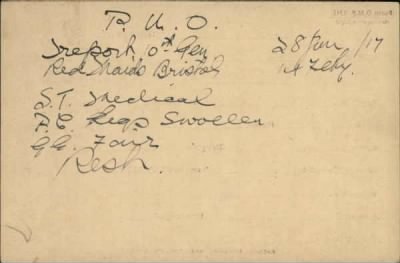 P. U. O.
Treport 10th Gen 28 Jan /17
Red Maids Bristol 14 Feby.
S.T. Medical
P.C. Legs Swollen
G.C. Fair
Resh.